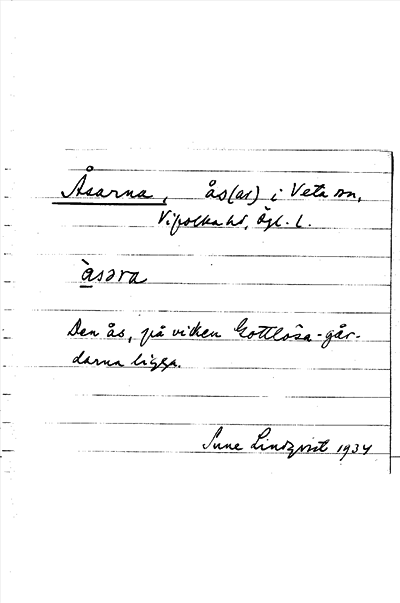 Åsarna, ås(ar) i Veta sn,
Vifolka hd, Ögl. l.
àsəra
Den ås, på vilken Gottlösa-går-
darna ligga.
Sune Lindqvist 1934